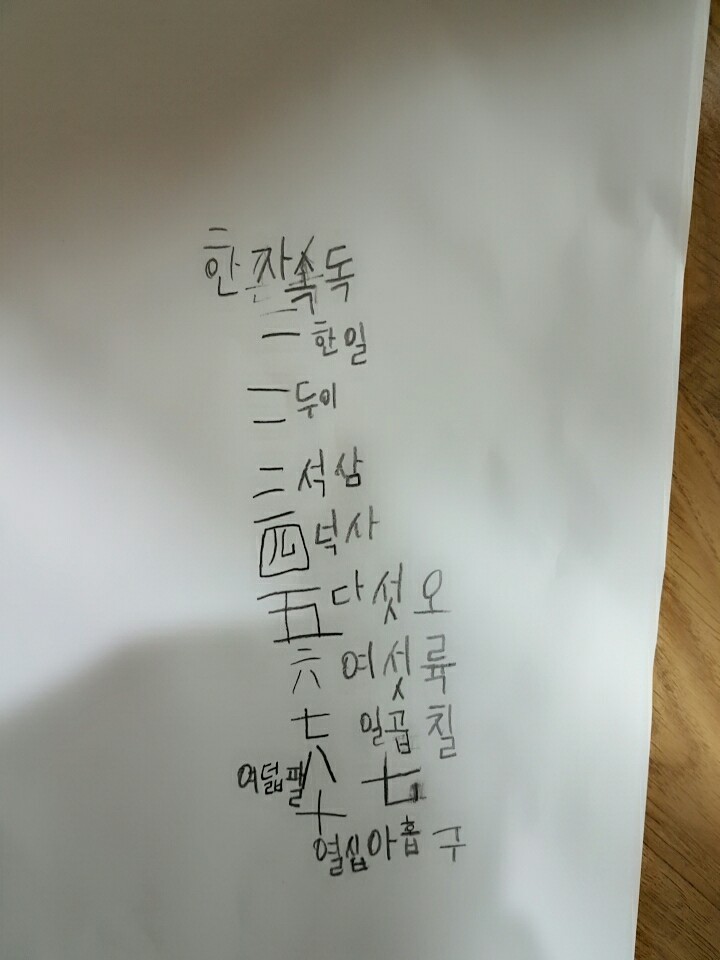 한자속독
一 한일
二 두이
三 석삼
四 넉사
五 다섯 오
六 여섯 륙
七 일곱 칠
여덟팔 八 七
十
열십 아홉 구